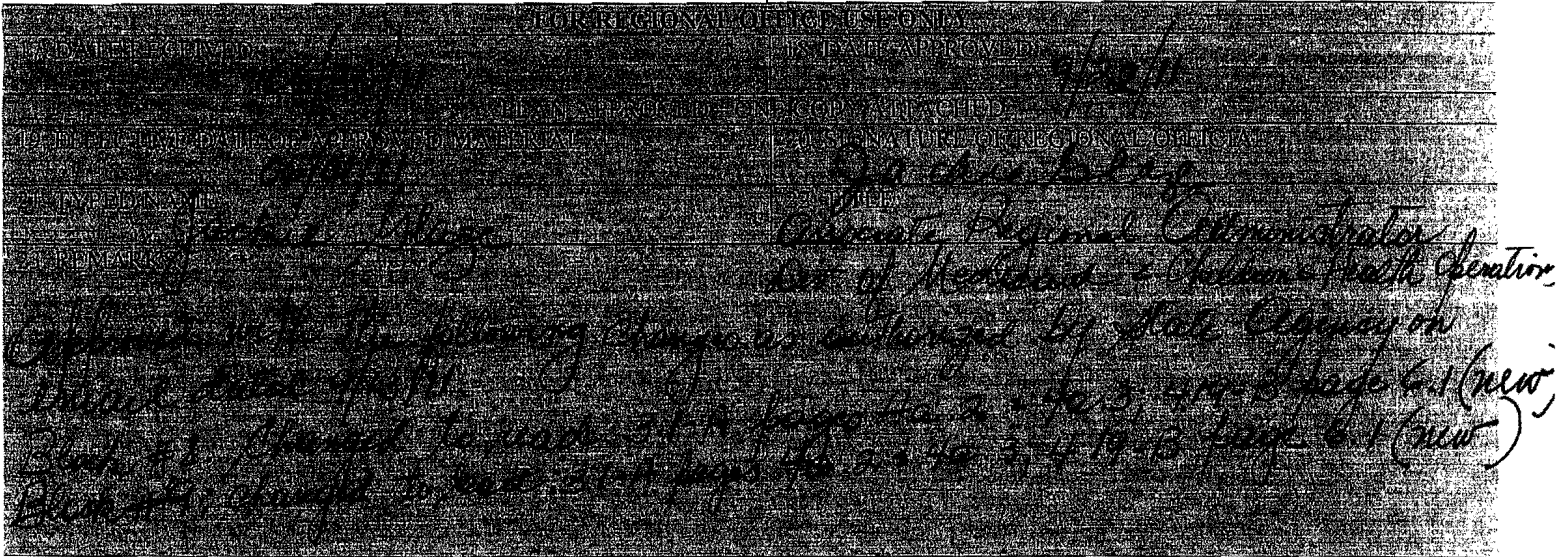 FOR REGIONAL OFFICE USE ONLY
17. DATE RECEIVED: 18. DATE APPROVED:
9/20/11
PLAN APPROVED – ONE COPY ATTACHED
19. EFFECTIVE DATE OF APPROVED MATERIAL: 20. SIGNATURE OF REGIONAL OFFICIAL:
21. TYPED NAME: 22. TITLE:
Jackie Associate Regional Administrator
23. REMARKS: Div of Medicaid & Children's Health Operations
Approved with the following changes as authorized by State Agency on
email dated
Block #8 changed to read: 3.1-A pages 4a.2 4a.3, 4.19-B page 6.1 (new)
Block # changed to read: 3.1-A pages 4a.2 4a 3, 4 19-B page 6.1 (new)